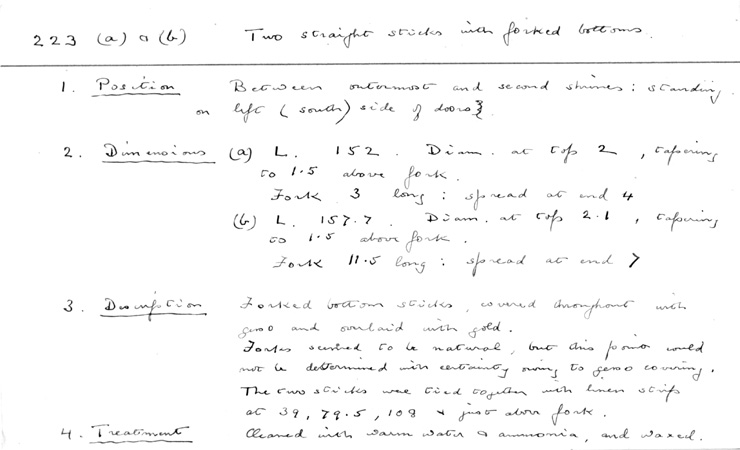 223 (a) & (b) Two straight sticks with forked bottoms.
1. Position Between outermost and second shrines: standing
on left (south) side of doors.
2. Dimensions (a) L. 152. Diam. at top 2, tapering
to 1.5 above fork.
Fork 3 long: spread at end 4
(b) L. 157.7. Diam. at top 2.1, tapering
to 1.5 above fork.
Fork 11.5 long: spread at end 7
3. Description Forked bottom sticks, covered throughout with
gesso and overlaid with gold.
Forks seemed to be natural, but this point could
not be determined with certainty owing to gesso covering.
The two sticks were tied together with linen strips
at 39, 79.5, 108 & just above fork.
4. Treatment Cleaned with warm water & ammonia, and waxed.